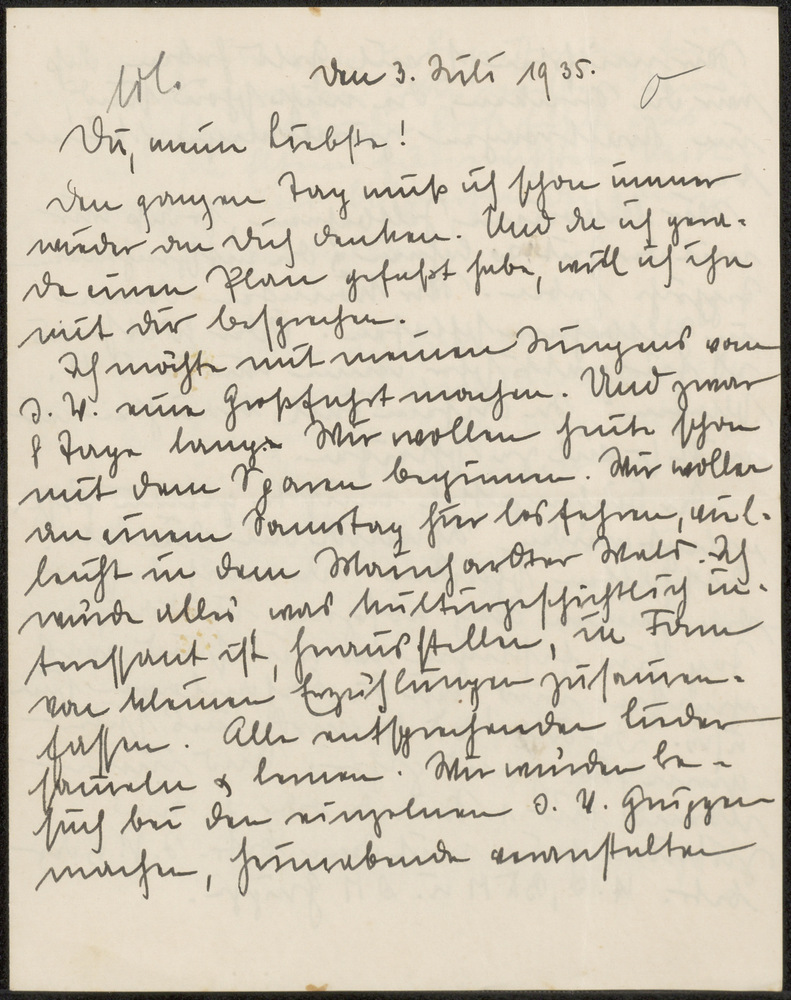 Den 3. Juli 1935.
Du, meine Liebste!
Den ganzen Tag muß ich schon immer
wieder an Dich denken. Und da ich gera-
de einen Plan gefaßt habe, will ich ihn
mit dir besprechen.
Ich möchte mit meinen Jungens vom
J. V. eine Großfahrt machen. Und zwar
8 Tage lang. Wir wollen heute schon
mit dem Sparen beginnen. Wir wollen
an einem Samstag hier losfahren, viel-
leicht in dem Mainhardter Wald. Ich
würde alles was kulturgeschichtlich in-
teressant ist, herausstellen, in Form
von kleinen Erzählungen zusammen-
fassen. Alle entsprechenden Lieder
sammeln & lernen. Wir würden Be-
such bei den einzelnen J. V. Gruppen
machen, Heimabende veranstalten